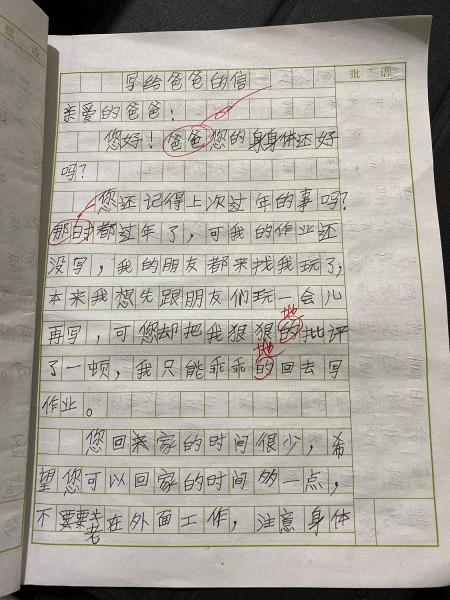 批语
写给爸爸的信
亲爱的爸爸:
您好!爸爸您的身身体还好
吗?
您还记得上次过年的事吗?
那时都过年了,可我的作业还
没写,我的朋友都来找我玩了,
本来我想先跟朋友们玩一会儿
地
再写,可您却把我狠狠的批评
地
了一顿,我只能乖乖的回去写
作业。
您回来家的时间很少,希
望您可以回家的时间多一点,
不要老在外面工作,注意身体